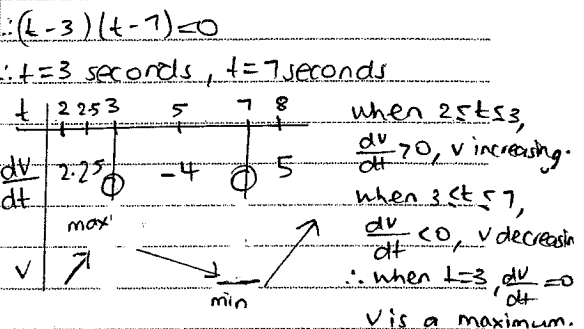 ∴(t-3)(t-7)=0
∴t=3 seconds, t=7 seconds
t 2 2.5 3 5 7 8
dv/dt 2.25 0 -4 0 5
max
v
min
when 2≤t≤3,
dv/dt >0, v increasing.
when 3≤t≤7,
dv/dt <0, v decreasin
∴ when t=3, dv/dt =0
v is a maximum.